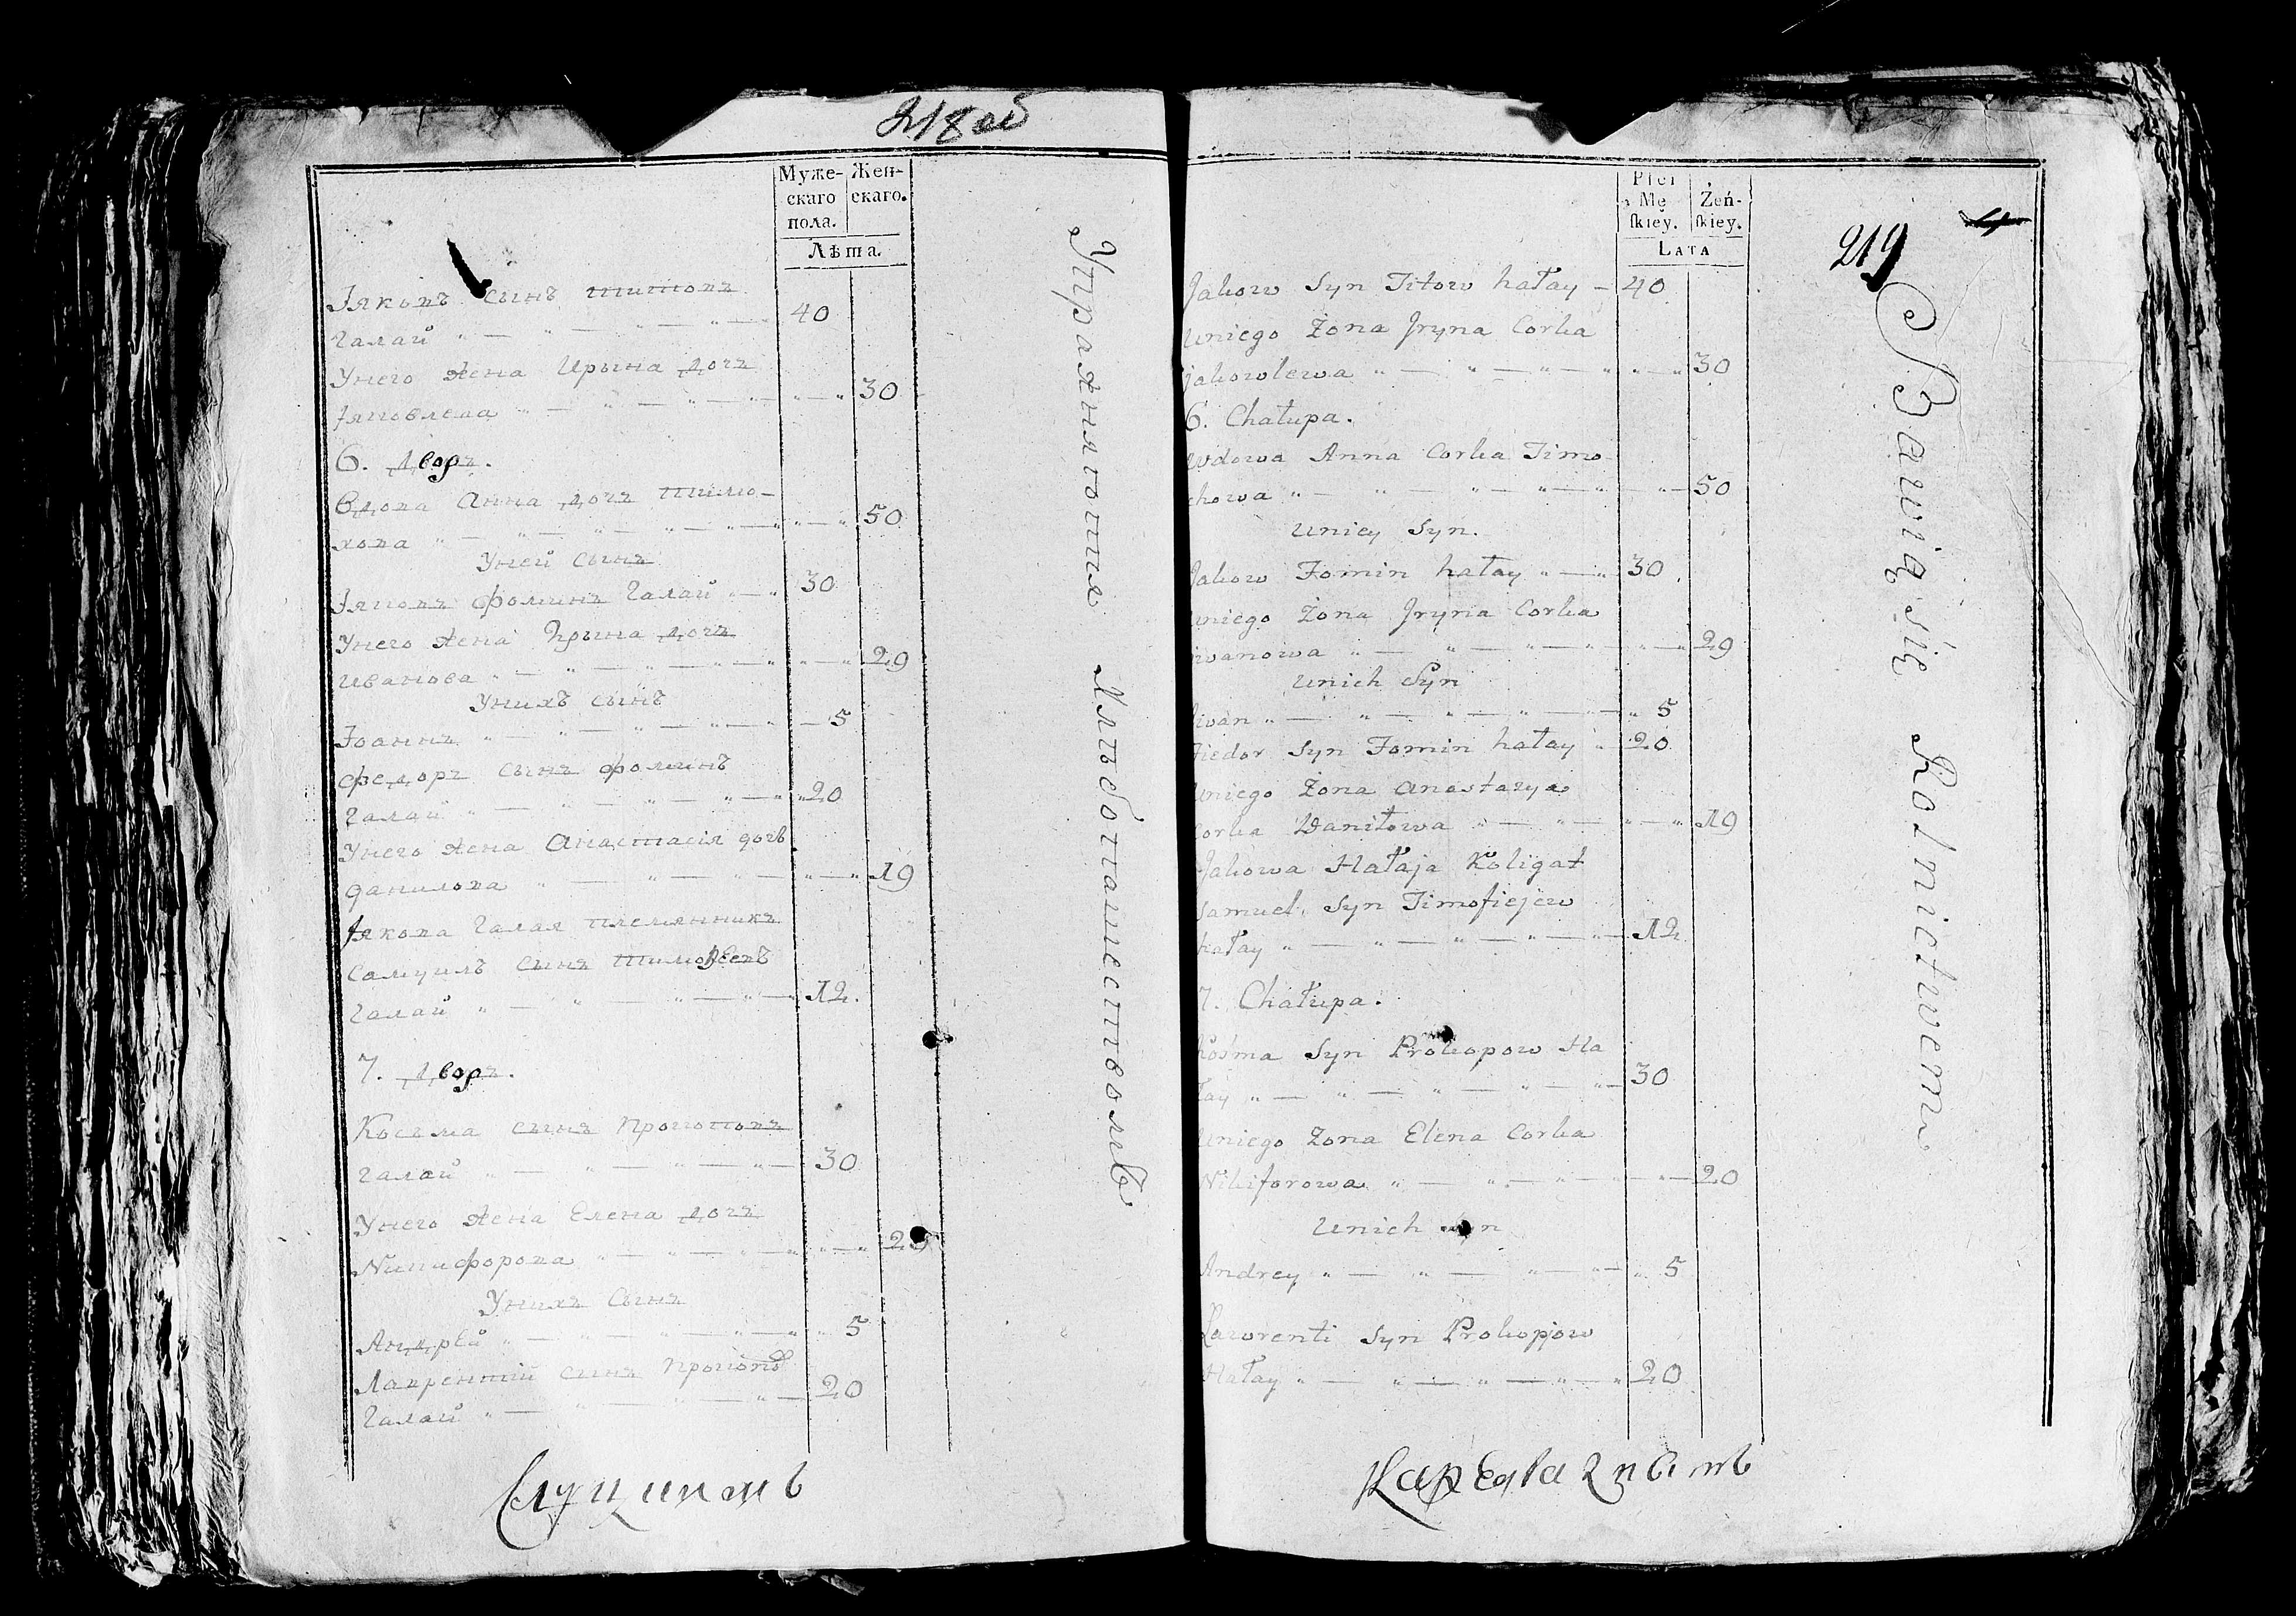 218 об
Муже-
скаго
пола.
Жен-
скаго.
Лѣта.
Іяковъ сынъ Титовъ
Галай 40
Унего жена Ирына дочь
Іяковлева 30
6. Дворъ.
Вдова Анна дочь Тимо-
хова 50
Уней сынъ
Іяковъ Фоминъ Галай 30
Унего жена Ирына дочь
Иванова 29
Унихъ сынъ
Іоаннъ 5
Федоръ сынъ Фоминъ
Галай 20
Унего жена Анастасія дочь
Данилова 19
Іякова Галая племянникъ
Самуилъ сынъ Тимофеевъ
Галай 12.
7. Дворъ.
Косьма сынъ Прокоповъ
Галай 30
Унего жена Елена дочь
Никифорова 29
Унихъ сынъ
Андрей 5
Лаврентій сынъ Прокопо
Галай 20
Упражняются Хлѣбопашествомъ
Płci
Mę
skiey.
Żeń-
skiey.
LATA
219
4
Jakow Syn Titow hałay 40
Uniego Żona Jryna Corka
jakowlewa 30
6. Chałupa.
Wdowa Anna Corka Timo-
chowa 50
Uniey Syn.
Jakow Fomin hałay 30
Uniego Żona Jryna Corka
iwanowa 29
Unich Syn
Jwan 5
Fiedor Syn Fomin hałay 20
Uniego Żona Anastazya
Corka Daniłowa 19
Jakowa Hałaja Koligat
Samuel Syn Timofiejew
hałay 12
7. Chałupa.
Kośma Syn Prokopow Ha
łay 30
Uniego Żona Elena Corka
Nikiforowa 20
Unich Syn
Andrey 5
Lawrenti Syn Prokopjow
Hałay 20
Bawią się Rolnictwem